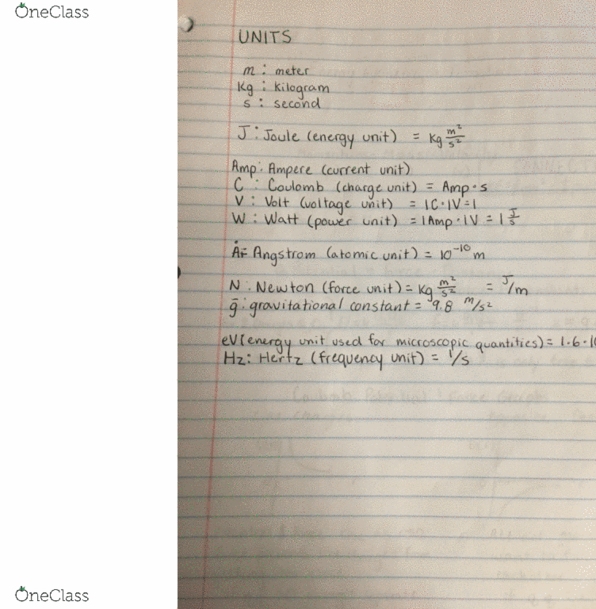 OneClass
UNITS
m : meter
Kg : Kilogram
s : second
J : Joule (energy unit) = Kg m²/s²
Amp : Ampere (current unit)
C : Coulomb (charge unit) = Amp · s
V : Volt (voltage unit) = 1C · 1V = 1
W : Watt (power unit) = 1Amp · 1V = 1 J/s
Å = Angstrom (atomic unit) = 10⁻¹⁰ m
N : Newton (force unit) = Kg m²/s² = J/m
g : gravitational constant = 9.8 m/s²
eV (energy unit used for microscopic quantities) = 1.6 · 10
Hz : Hertz (frequency unit) = 1/s
OneClass